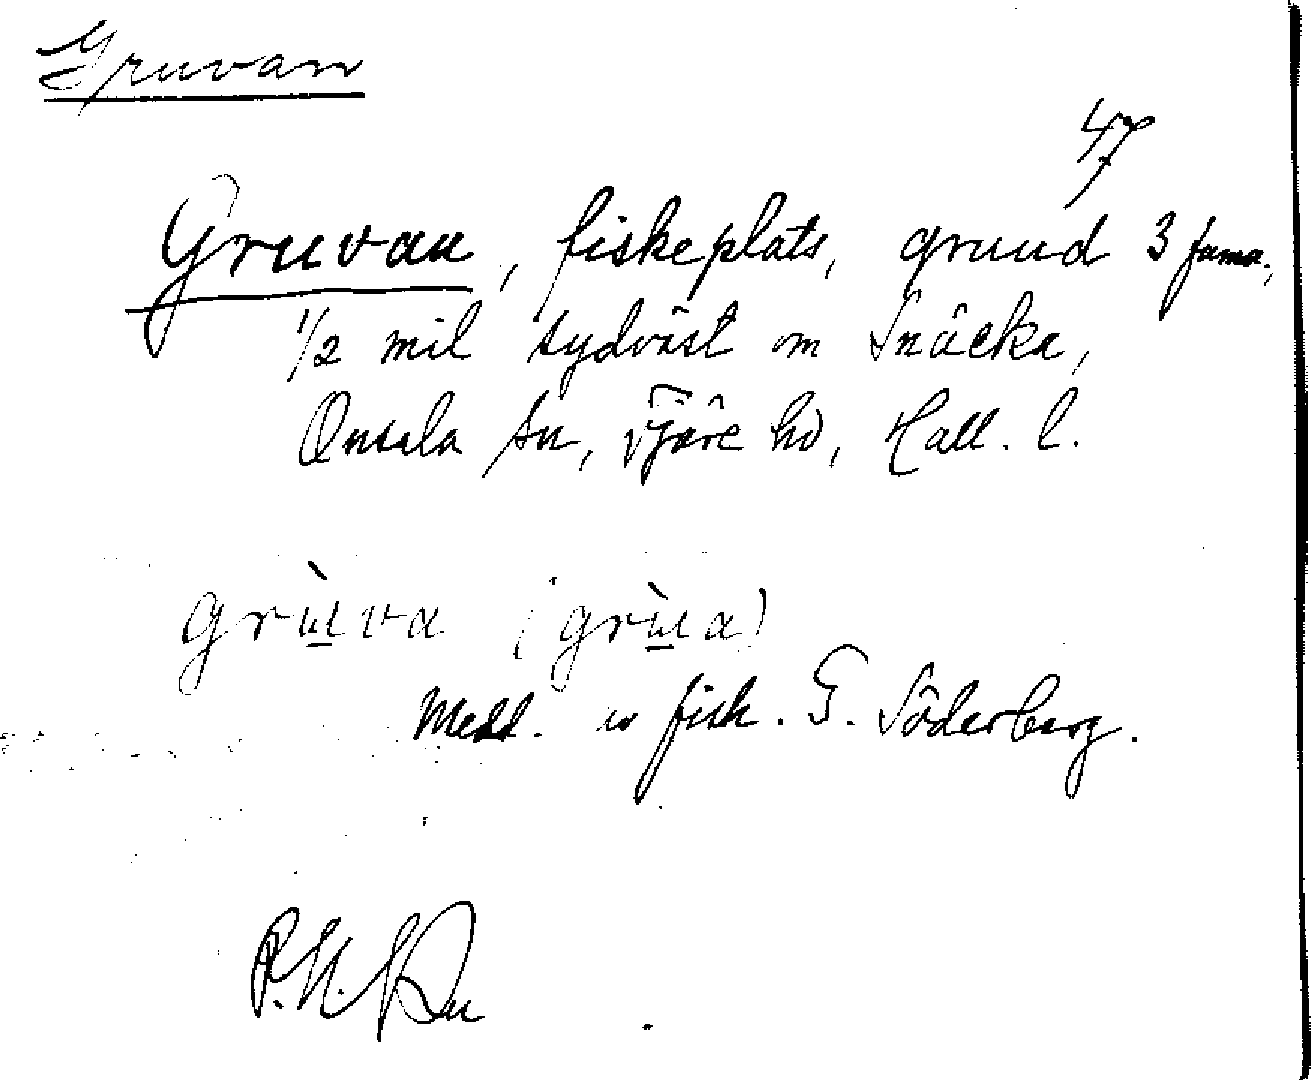 Gruvan
47
Gruvan, fiskeplats, grund 3 famn.,
1/2 mil sydväst om Snäcka,
Onsala sn, Fjäre hd, Hall. l.
grùva (grùa)
Medd. av fisk. G. Söderberg.
P. H.